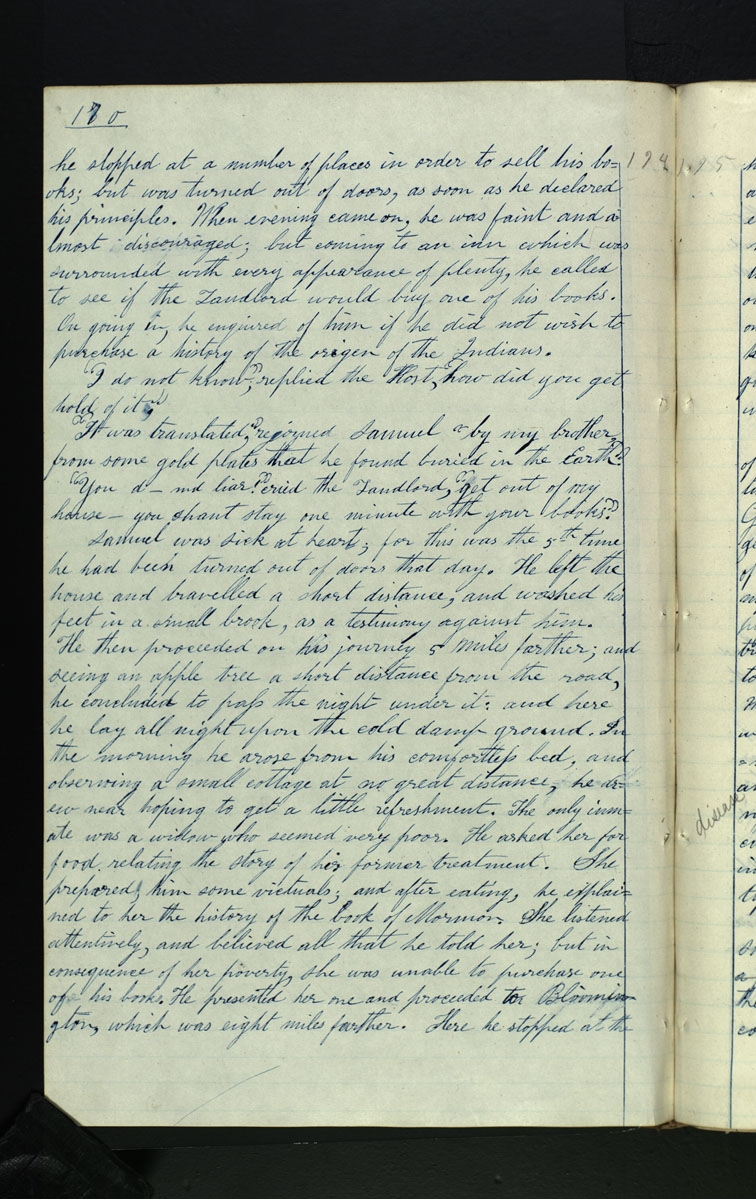 170
he stopped at a number of places in order to sell his bo=
oks; but was turned out of doors, as soon as he declared
his principles. When evening came on, he was faint and a
lmost discouraged; but coming to an inn which was
surrounded with every appearance of plenty, he called
to see if the Landlord would buy one of his books.
On going in, he enquired of him if he did not wish to
purchase a history of the origen of the Indians.
"I do not know", replied the Host, "how did you get
hold of it?"
"It was translated," rejoined Samuel "by my brother
from some gold plates that he found buried in the Earth".
"You d—nd liar!" cried the Landlord, "get out of my
house— you shant stay one minute with your books".
Samuel was sick at heart; for this was the 5th time
he had been turned out of doors that day. He left the
house and travelled a short distance, and washed his
feet in a small brook, as a testimony against him.
He then proceeded on his journey 5 miles farther; and
seeing an apple tree a short distance from the road,
he concluded to pass the night under it; and here
he lay all night upon the cold damp ground. In
the morning he arose from his comfortless bed, and
observing a small cottage at no great distance, he dr=
ew near hoping to get a little refreshment. The only inm=
ate was a widow, who seemed very poor. He asked her for
food, relating the story of his former treatment. She
prepared him some victuals; and after eating, he explai=
ned to her the history of the book of Mormon. She listened
attentively, and believed all that he told her; but in
consequence of her poverty, she was unable to purchase one
of his books. He presented her one and proceeded to Bloomin
gton, which was eight miles farther. Here he stopped at the
194
195
disease